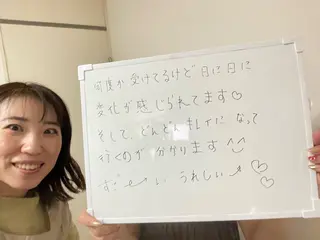 何度か受けてるけど日に日に
変化が感じられてます♡
そして、どんどんキレイになって
行くのが分かります^^
すごーい うれしい